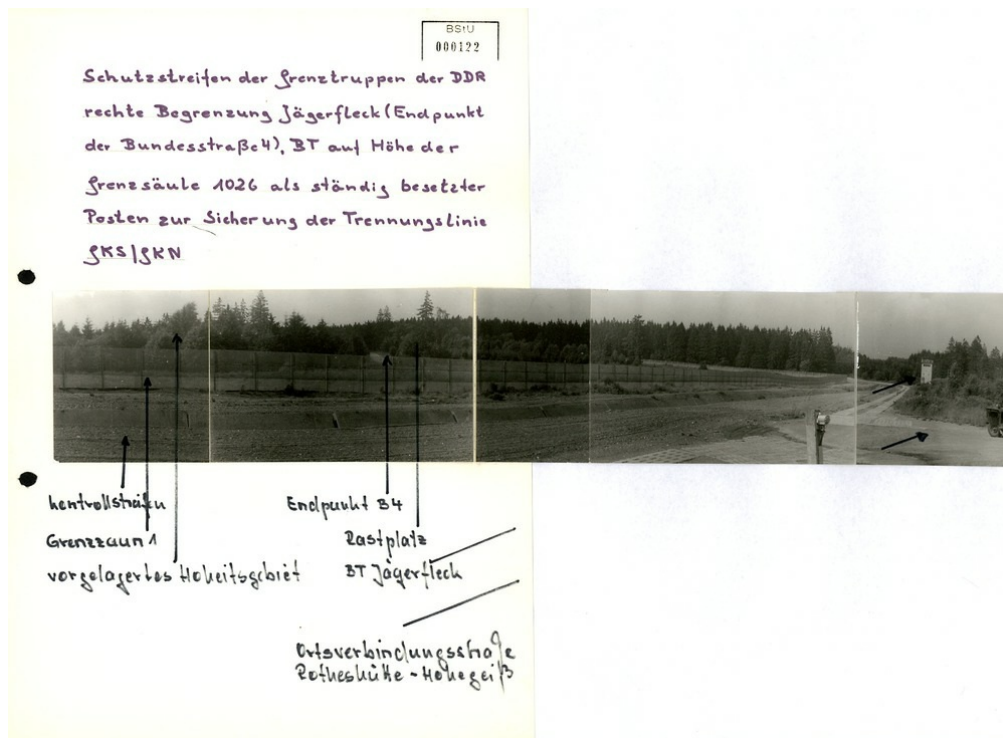 BStU
000122
Schutzstreifen der Grenztruppen der DDR
rechte Begrenzung Jägerfleck (Endpunkt
der Bundesstraße 4), BT auf Höhe der
Grenzsäule 1026 als ständig besetzter
Posten zur Sicherung der Trennungslinie
GKS/GKN
Kontrollstreifen
Grenzzaun 1
vorgelagertes Hoheitsgebiet
Endpunkt B4
Rastplatz
BT Jägerfleck
Ortsverbindungsstraße
Rotheshütte - Hohegeiß